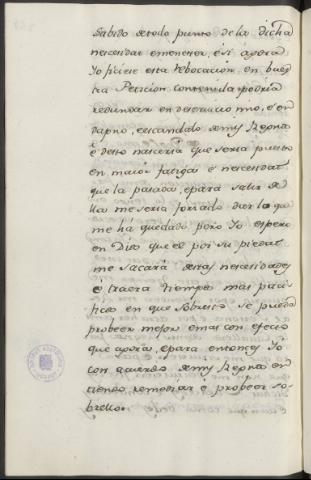 Sabido de todo punto de la dicha
necesidad e menester, é si agora
Yo ficiese esta rebocacion en bues
tra Peticion contenida podria
redundar en deserucio mio, é en
dapño, e escandalo de mis Regnos
é desto nasceria que seria puesto
en maior fatiga é necesidad
que la pasada, e para salir de
lla me seria forzado dar lo que
me há quedado pero Yo espero
en Dios que él por su piedat
me sacará destas necesidades
é traera tiempos mas paci
ficos en que sobresto se pueda
probeer mejor e mas con efecto
que agora, e para entonces Yo
con acuerdo de mis Regnos en
tiendo remediar é probeer so
brello.